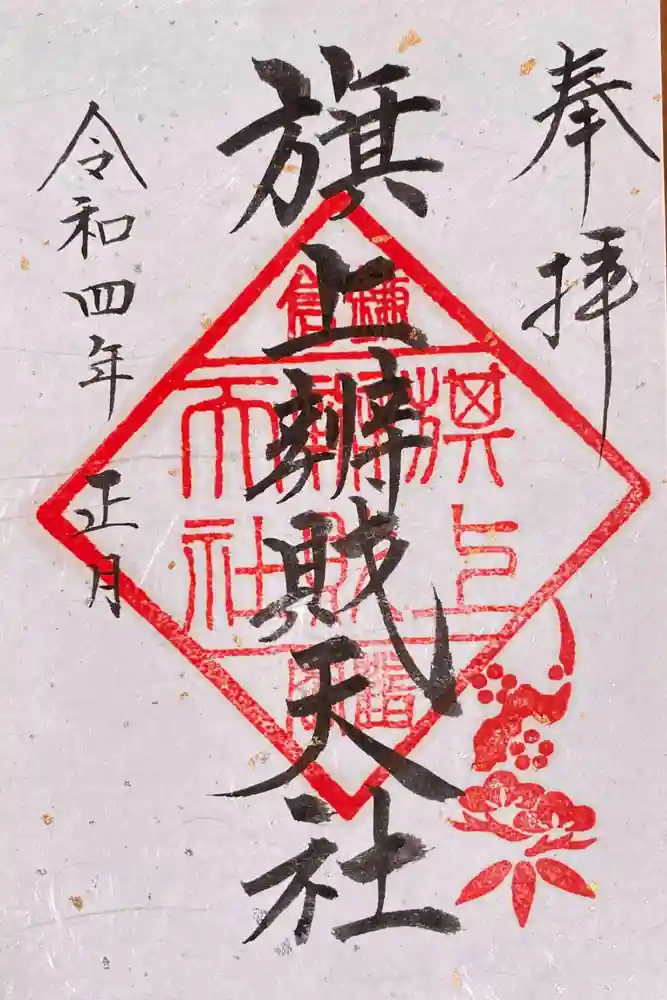 奉拝
旗上辨財天社
令和四年正月
鎌倉
旗上
辨財
天社